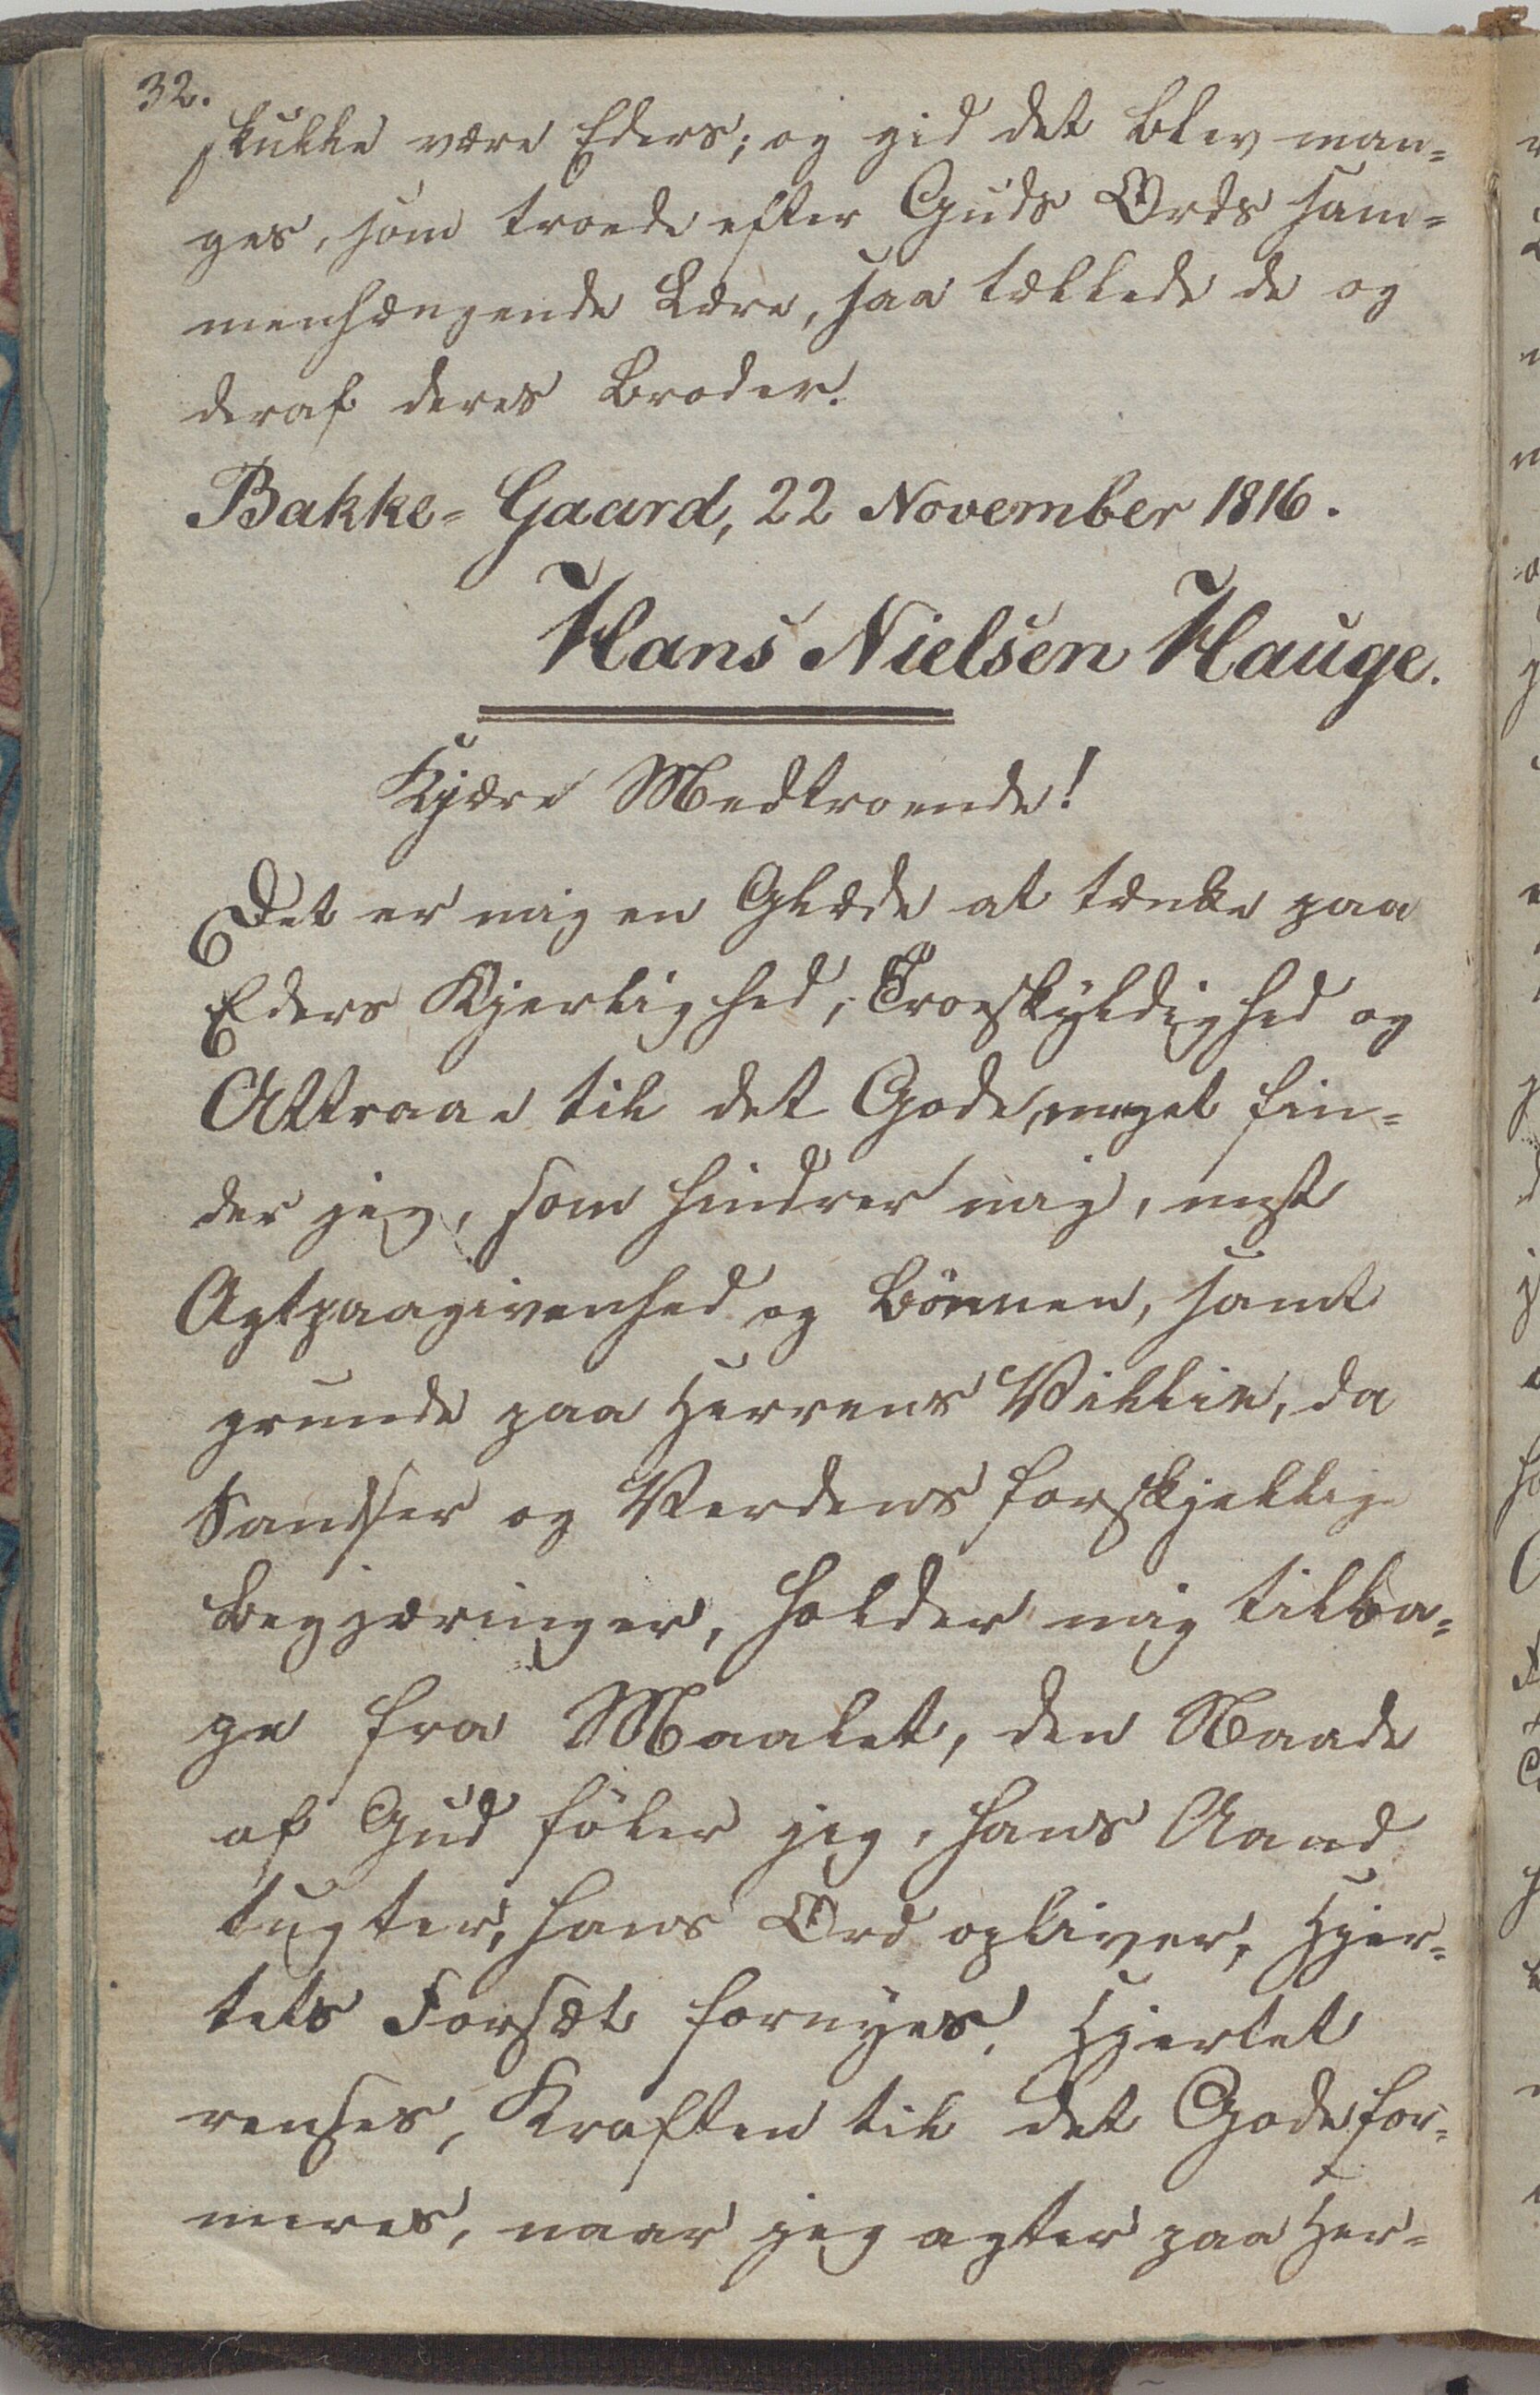 32.
skulle være Eders; og gid det blev man=
ges, som troede efter Guds Ords sam=
menhængende Lære, saa tællede de og
deraf deres Broder.
Bakke= Gaard, 22 November 1816.
Hans Nielsen Hauge.
Kjære Medtroende!
Det er mig en Glæde at tænke paa
Eders Kjerlighed, Troeskyldighed og
Attraae til det Gode, meget fin=
der jeg, som hindrer mig, mest
Agtpaagivenhed og Bönnen, samt
grunde paa Herrens Villie, da
Sandser og Verdens forskjellige
Begjæringer, holder mig tilba=
ge fra Maalet, den Naade
af Gud föler jeg, hans Aand
tugter, hans Ord opliver, Hjer=
tets Forsæt fornyes, Hjertet
renses, Kraften til det Gode for=
meres, naar jeg agter paa Her=